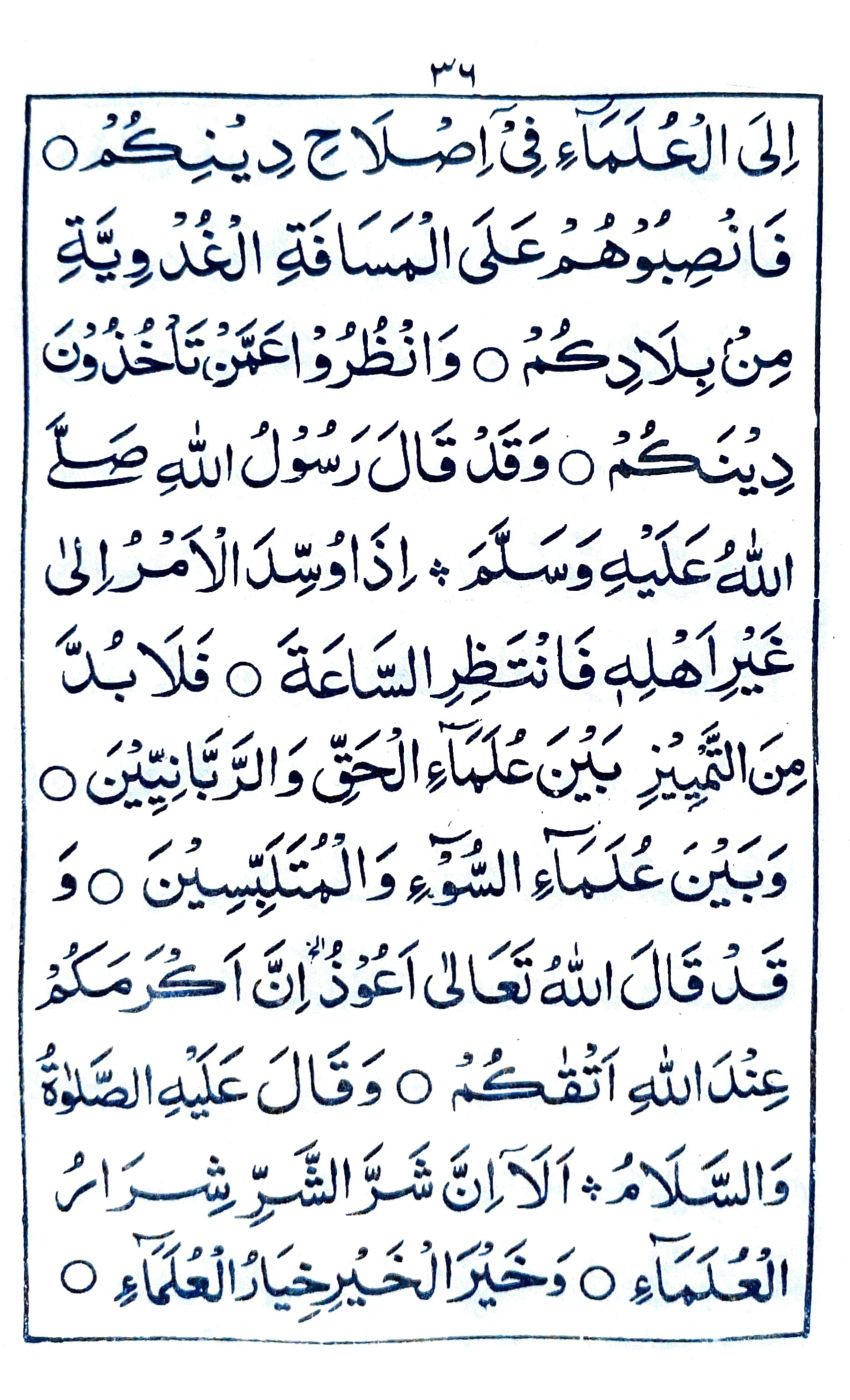 ٣٦
اِلَى الْعُلَمَآءِ فِيْٓ اِصْلَاحِ دِيْنِكُمْ ○
فَانْصِبُوْهُمْ عَلَى الْمَسَافَةِ الْغُدْوِيَّةِ
مِنْۢ بِلَادِكُمْ ○ وَانْظُرُوْا عَمَّنْ تَاْخُذُوْنَ
دِيْنَكُمْ ○ وَقَدْ قَالَ رَسُوْلُ اللّٰهِ صَلَّے
اللّٰهُ عَلَيْهِ وَسَلَّمَ ؞ اِذَا وُسِّدَ الْاَمْرُ اِلٰى
غَيْرِ اَهْلِهٖ فَانْتَظِرِ السَّاعَةَ ○ فَلَا بُدَّ
مِنَ التَّمْيِيْزِ بَيْنَ عُلَمَآءِ الْحَقِّ وَالرَّبَّانِيِّيْنَ ○
وَبَيْنَ عُلَمَآءِ السُّوْٓءِ وَالْمُتَلَبِّسِيْنَ ○ وَ
قَدْ قَالَ اللّٰهُ تَعَالٰى اَعُوْذُ الخ اِنَّ اَكْرَمَكُمْ
عِنْدَ اللّٰهِ اَتْقٰكُمْ ○ وَقَالَ عَلَيْهِ الصَّلٰوةُ
وَالسَّلَامُ ؞ اَلَآ اِنَّ شَرَّ الشَّرِّ شِرَارُ
الْعُلَمَآءِ ○ وَخَيْرَ الْخَيْرِ خِيَارُ الْعُلَمَآءِ ○